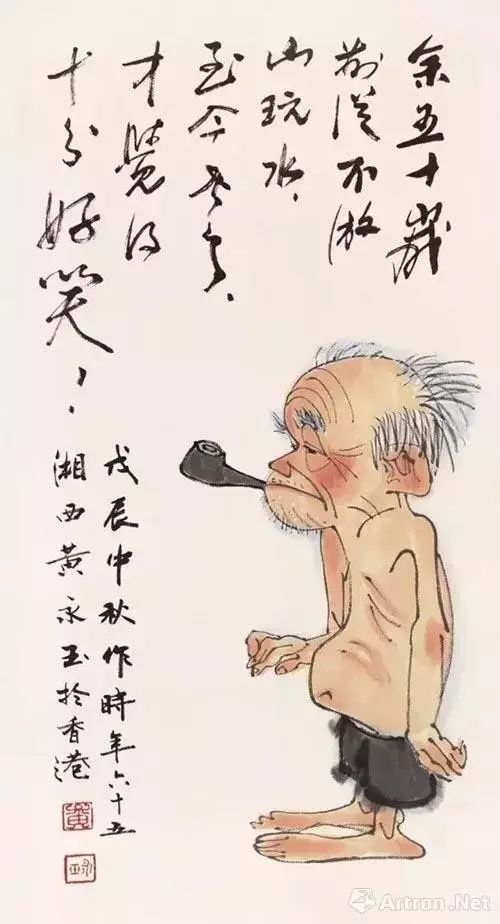 余五十歲
前從不游
山玩水、
至今老了、
才覺得
十分好笑！
戊辰中秋作時年六十五
湘西黃永玉於香港
黃
Artron.Net